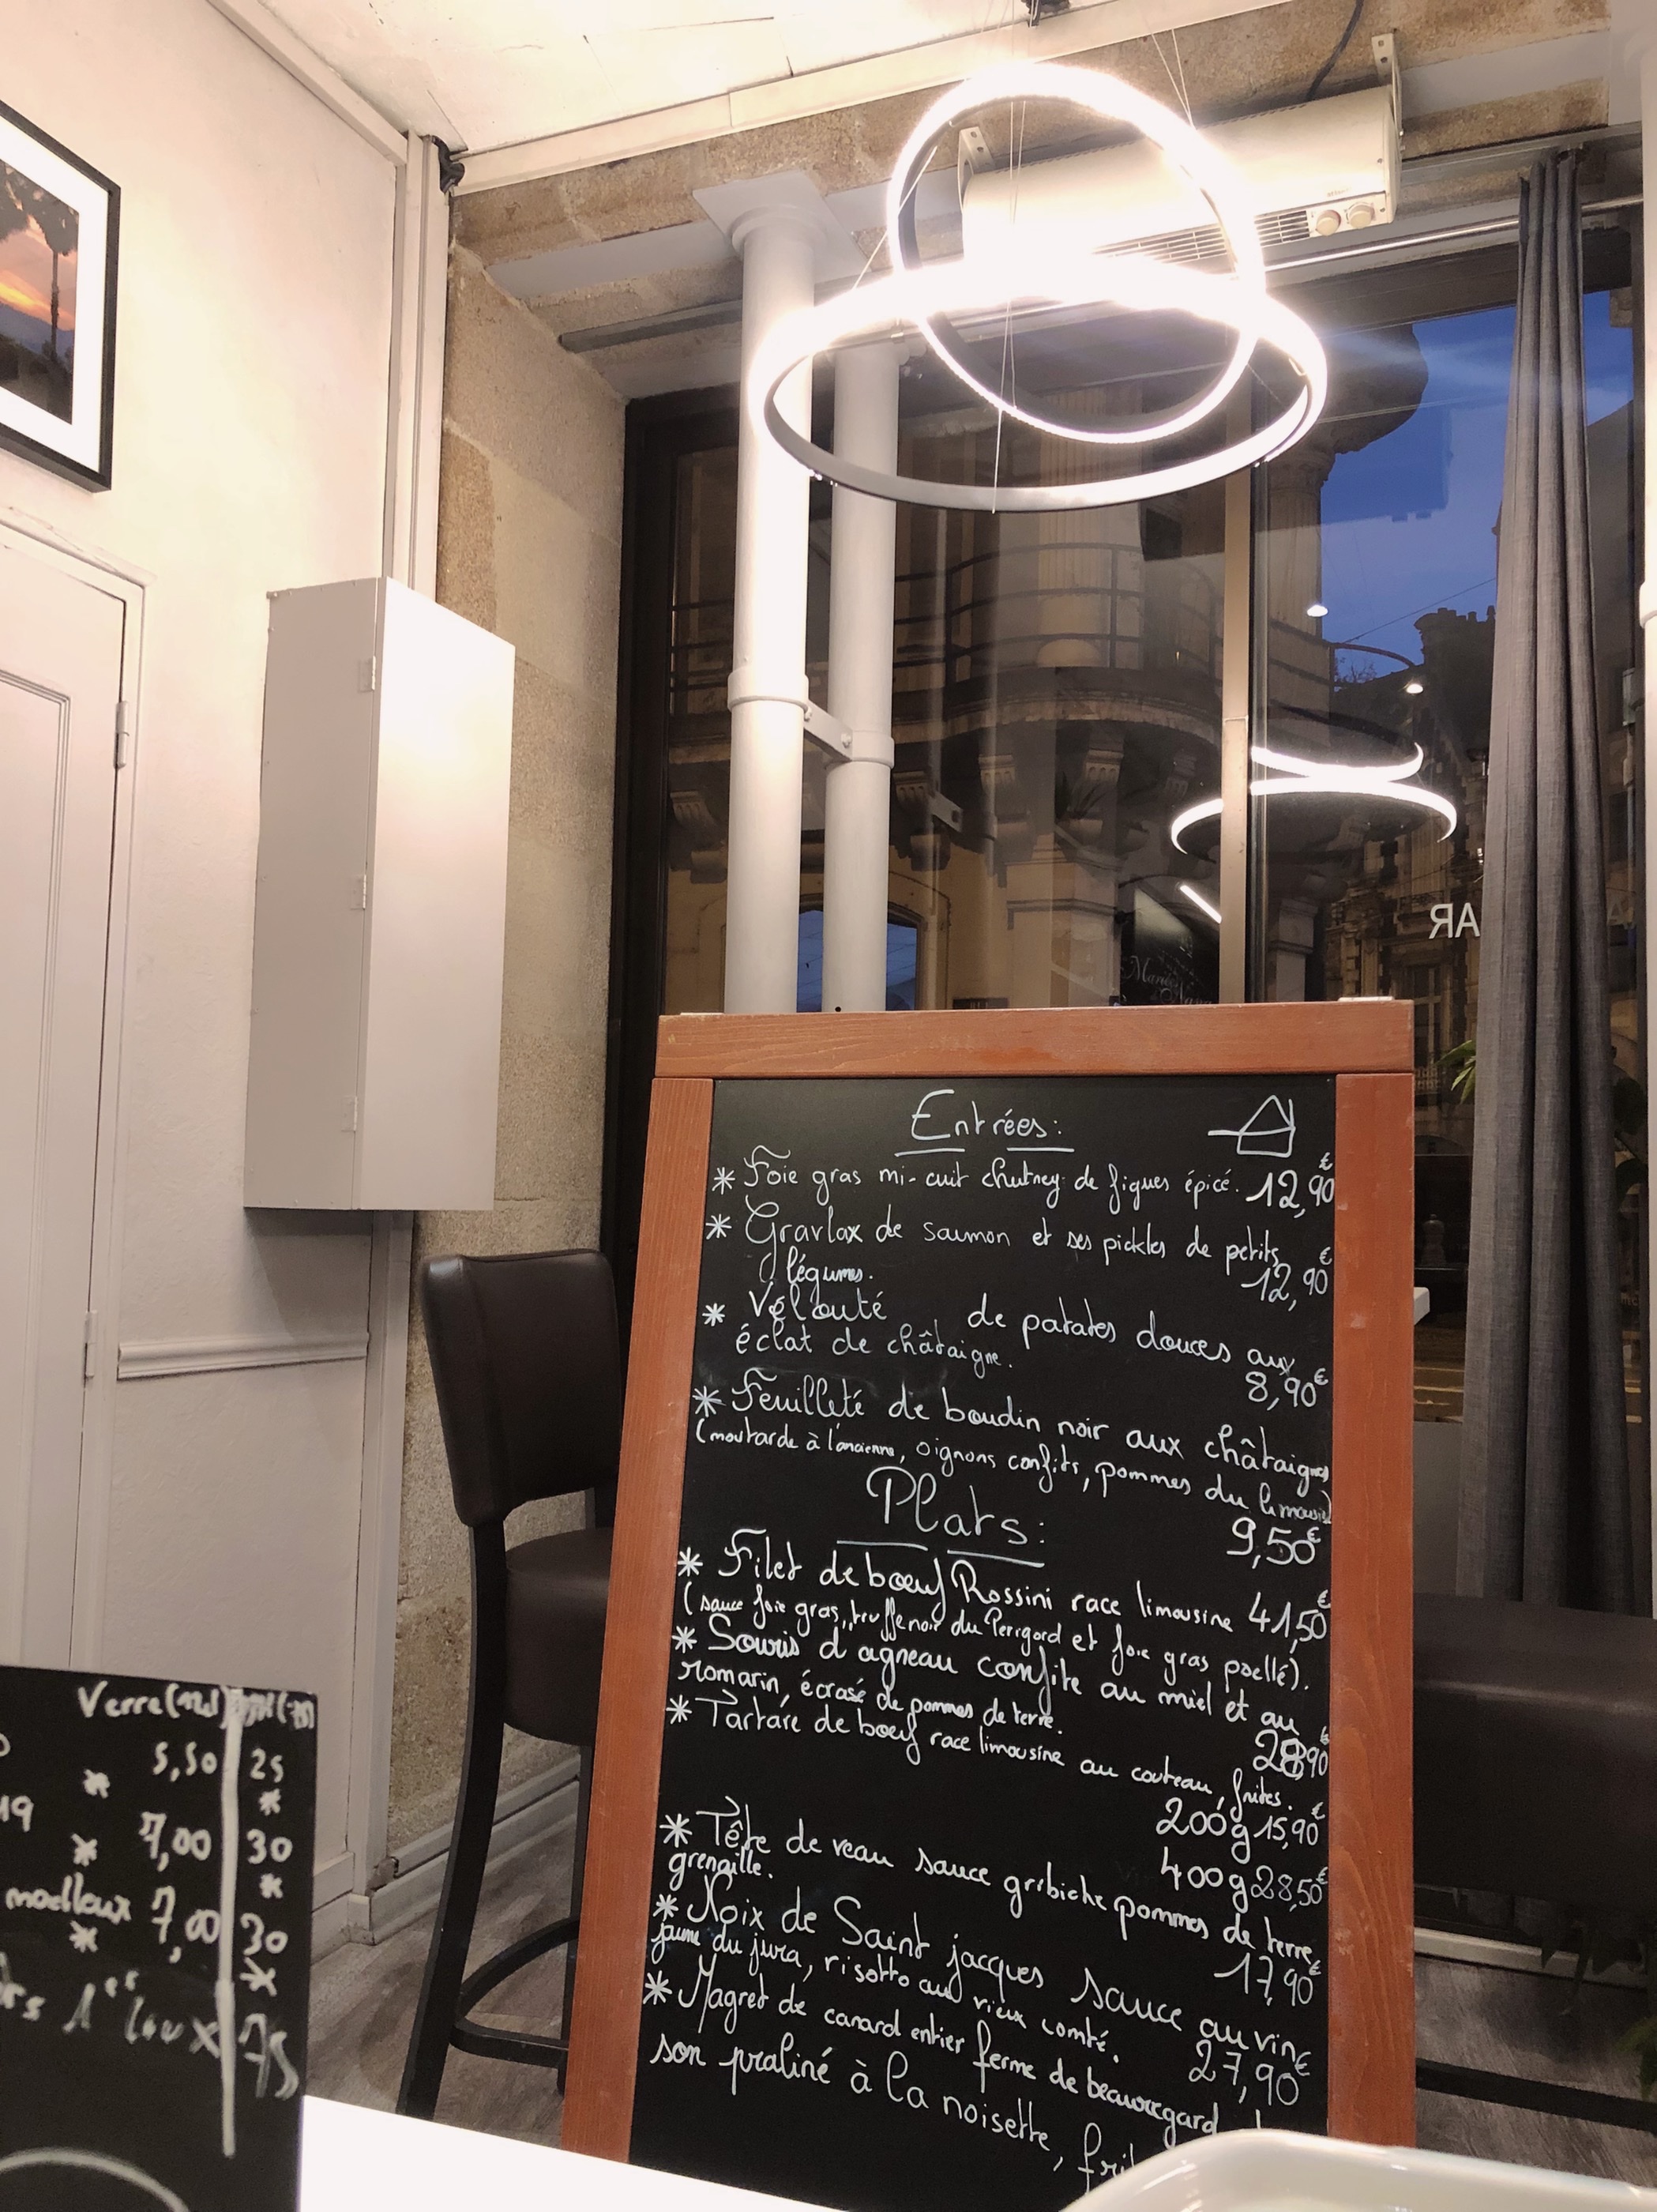 AR
Entrées:
* Foie gras mi-cuit chutney de figues épicé. 12,90€
* Gravlax de saumon et ses pickles de petits
légumes. 12,90€
* Vélouté de patates douces aux
éclat de châtaigne. 8,90€
* Feuilleté de boudin noir aux châtaignes
(moutarde à l'ancienne, oignons confits, pommes du limousin)
9,50€
Plats:
* Filet de bœuf Rossini race limousine 41,50€
(sauce foie gras, truffe noir du Perigord et foie gras poellé).
* Souris d'agneau confite au miel et au
romarin, écrasé de pommes de terre. 28,90€
* Tartare de bœuf race limousine au couteau, frites.
200g 15,90€
400g 28,50€
* Tête de veau sauce gribiche pommes de terre
grenaille. 17,90€
* Noix de Saint jacques sauce au vin
jaune du jura, risotto au vieux comté. 27,90€
* Magret de canard entier ferme de beauregard
son praliné à la noisette,
Verre
5,50 25
*
*
19 7,00 30
*
*
moelleux 7,00 30
*
*
75